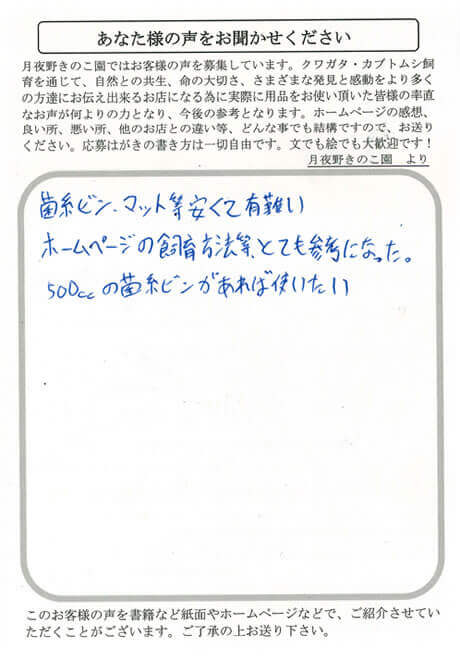 あなた様の声をお聞かせください
月夜野きのこ園ではお客様の声を募集しています。クワガタ・カブトムシ飼
育を通じて、自然との共生、命の大切さ、さまざまな発見と感動をより多く
の方達にお伝え出来るお店になる為に実際に用品をお使い頂いた皆様の率直
なお声が何よりの力となり、今後の参考となります。ホームページの感想、
良い所、悪い所、他のお店との違い等、どんな事でも結構ですので、お送り
ください。応募はがきの書き方は一切自由です。文でも絵でも大歓迎です！
月夜野きのこ園　より
菌糸ビン、マット等安くて有難い
ホームページの飼育方法等、とても参考になった。
500ccの菌糸ビンがあれば使いたい
このお客様の声を書籍など紙面やホームページなどで、ご紹介させてい
ただくことがございます。ご了承の上お送り下さい。